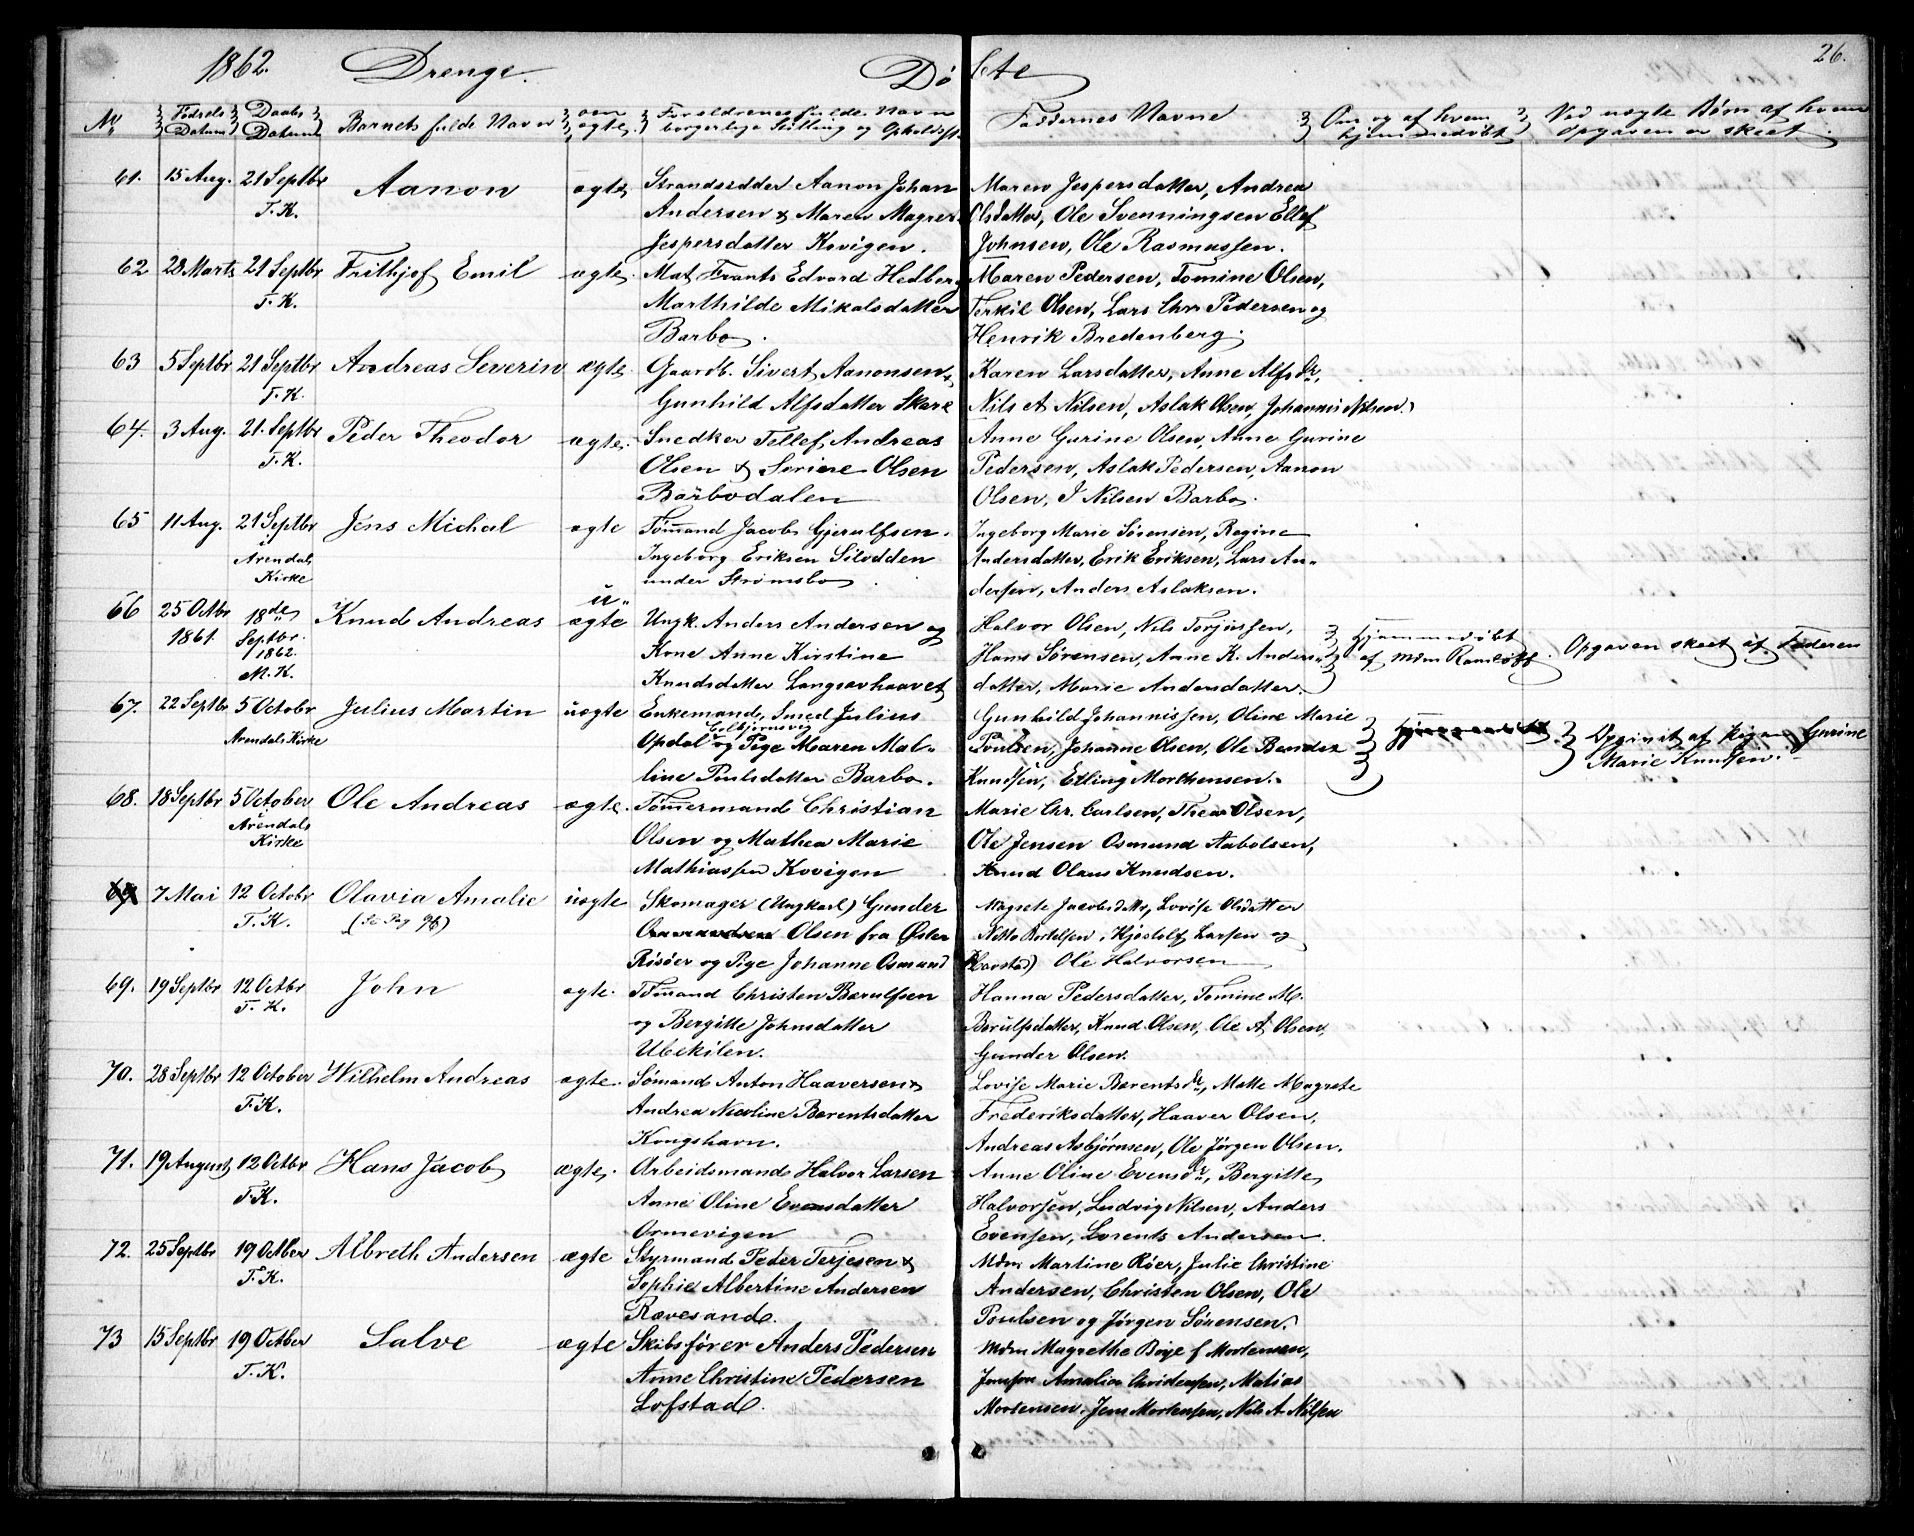 1862. Drenge. Dö bte 26.
No Fødsels Datum Daabs Datum Barnets fulde Navn om ægte Forældrenes fulde Navn borgerlige Stilling og Opholdsst. Faddernes Navne Om og af hvem hjemmedøbt Ved uægte Børn af hvem Opgaven er skeet.
61. 15 Aug. 21 Septbr Aanon ægte Strandsidder Aanon Johan Maren Jespersdatter, Andrea
T.K. Andersen & Maren Magret Olsdatter, Ole Svenningsen Ellef
Jespersdatter Kovigen. Johnsen, Ole Rasmussen.
62 28 Marts 21 Septbr Frithjof Emil ægte. Mat Frants Edvard Hedberg Maren Pedersen, Tomine Olsen,
T.K. Marthilde Mikalsdatter Terkil Olsen, Lars Chr. Pedersen og
Barbo. Henrik Bredenberg.
63 5 Septbr 21 Septbr Andreas Severin ægte. Gaardb. Sivert Aanonsen & Karen Larsdatter, Anne Alfsdr,
T.K. Gunhild Alfsdatter Skare Nils A Nilsen, Aslak Olsen, Johannis Nilsen.
64. 3 Aug. 21. Septbr Peder Theodor ægte. Snedker Tellef Andreas Anne Gurine Olsen, Anne Gurine
T.K. Olsen & Serine Olsen Pedersen, Aslak Pedersen, Aanon
Barbodalen Olsen, J Nilsen Barbo.
65 11 Aug. 21 Septbr Jens Michal ægte Tømand Jacob Gjerulfsen. Ingeborg Marie Sørensen, Regine
i Arendal Ingeborg Eriksen Silodden Andersdatter, Erik Eriksen, Lars An-
Kirke under Strømsbo dersen, Anders Aslaksen.
66 25 Octbr 18de Knud Andreas u- ægte Ungk. Anders Andersen og Halvor Olsen, Nils Torjussen, Hjemmedøbt
1861. Septbr. Kone Anne Kirstine Hans Sørensen, Anne K. Anders- af Mdm Opgaven skeet af Faderen
1862. M.K. Knudsdatter Langsævhaavet datter, Marie Andersdatter.
67. 22 Septbr 5 Octobr Julius Martin uægte Enkemand, Smed Julius Gunhild Johannissen, Oline Marie
Arendals Kirke Opdal Colbjørnsvig og Pige Maren Mal- Poulsen, Johanne Olsen, Ole Bendix Opgivet af Pigen Gurine
line Poulsdatter Barbo. Knudsen, Etling Morthensen. Marie Knudsen.
68. 18 Septbr 5 October Ole Andreas ægte. Tømmermand Christian Marie Chr. Carlsen, Thea Olsen,
i Arendals Olsen og Mathea Marie Ole Jensen Osmund Aabolsen,
Kirke Mathiassen Kovigen Knud Olaus Knudsen.
69 7 Mai 12 Octobr Olavia Amalie uægte Skomager (Ungkarl) Gunder Magrete Jacobsdatter, Lovise Olsdatter
T.K. (Se Pag 96) Olsen fra Øster Netto Bertelsen, Kjostolf Larsen og
Risöer og Pige Johanne Osmund Havstad) Ole Halvorsen
69. 19 Septbr 12 Octbr John ægte. Tømand Christen Bærulfsen Hanna Pedersdatter, Tomine M.
T.K. og Bergitte Johnsdatter Berulfsdatter, Knud Olsen, Ole A Olsen,
Ubekilen. Gunder Olsen.
70. 28 Septbr 12 October Wilhelm Andreas ægte. Sömand Anton Haaversen & Lovise Marie Bærentsdr, Matte Magrete
T.K. Andrea Nicoline Bærentsdatter Frederiksdatter, Haaver Olsen,
Kongshavn. Andreas Asbjørnsen, Ole Jørgen Olsen.
71. 19 August 12 Octbr. Hans Jacob ægte. Arbeidsmand Halvor Larsen Anne Oline Evensdr, Bergitte
T.K. Anne Oline Evensdatter Halvorsen, Ludvig Nilsen, Anders
Ormevigen Evensen, Lorents Andersen.
72. 25 Septbr 19 Octber Albreth Andersen ægte Styrmand Peder Terjesen & Mdm Martine Röer, Julie Christine
T.K. Sophie Albertine Andersen Andersen, Christen Olsen, Ole
Rævesand. Poulsen og Jørgen Sörensen.
73 15 Septbr 19 Octber Salve ægte Skibsfører Anders Pedersen Mdm Magrethe Boye f Mortensen,
T.K. Anne Christine Pedersen Jomfru Amalia Christensen, Matias
Lofstad. Mortensen, Jens Mortensen, Nils A Nilsen